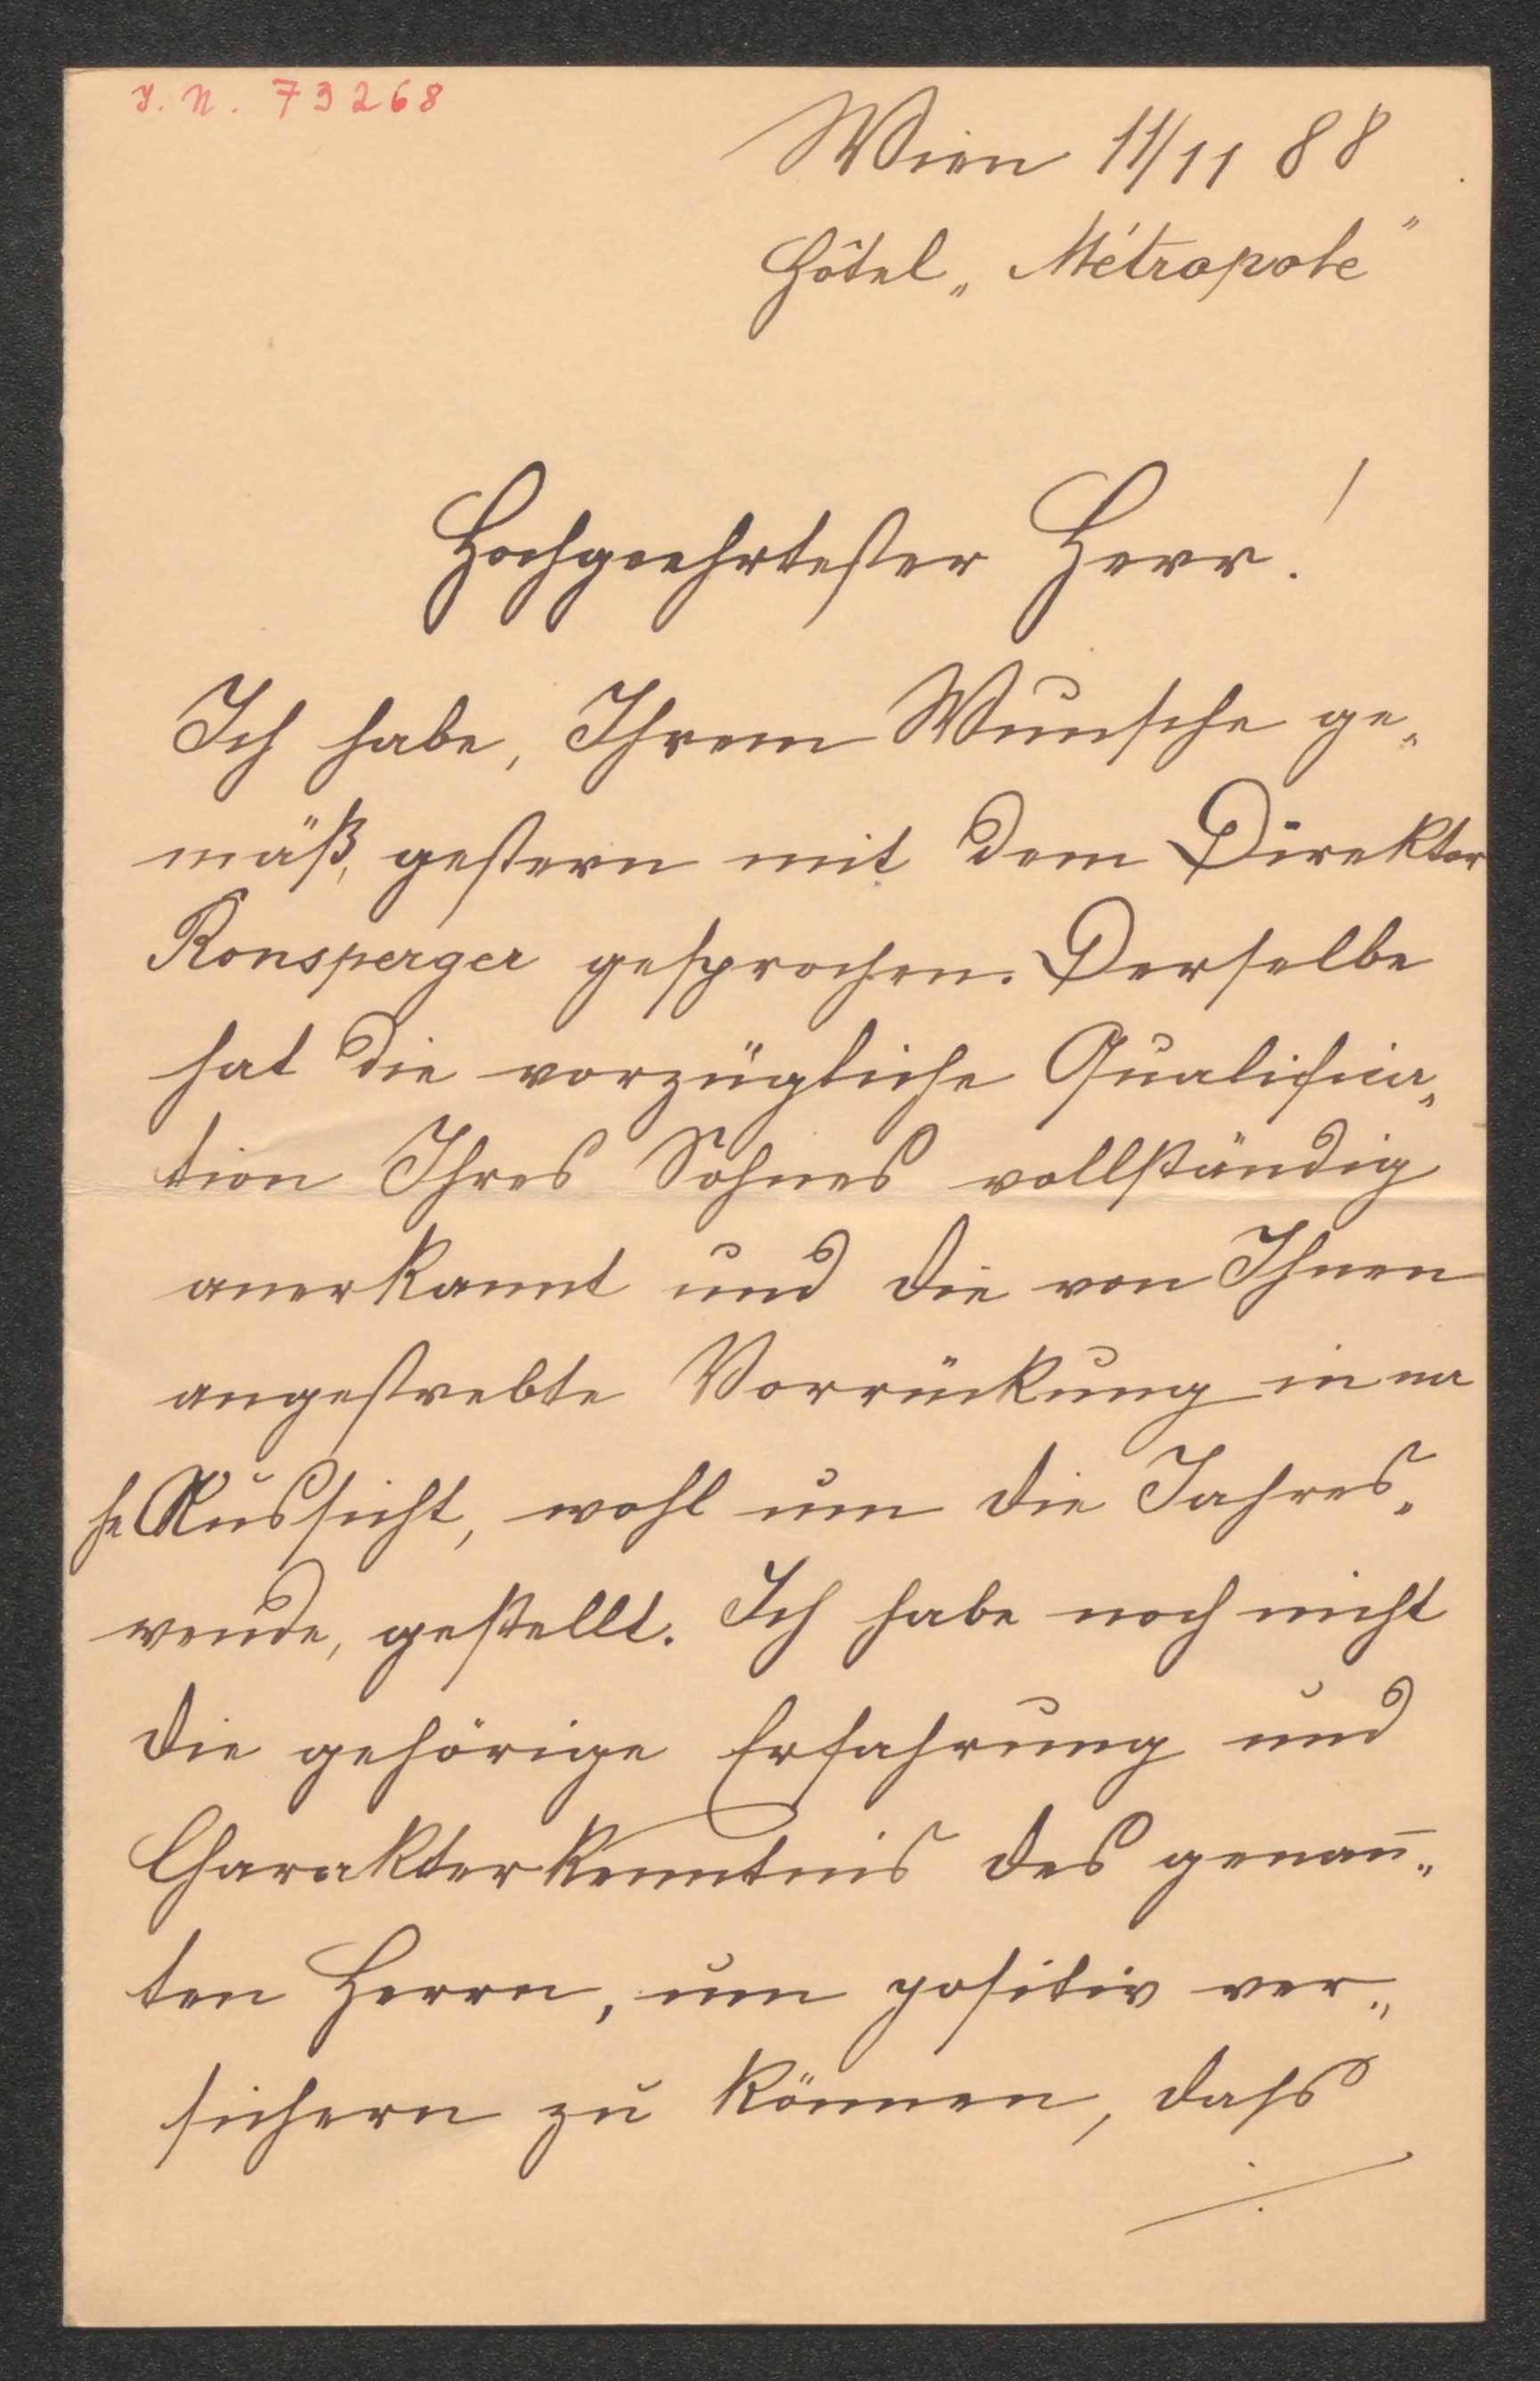 J. N. 73268
Wien 11/11 88
Hôtel „Métropole"
Hochgeehrtester Herr!
Ich habe, Ihrem Wunsche ge„
mäß, gestern mit dem Direktor
Ronsperger gesprochen. Derselbe
hat die vorzügliche Qualifica„
tion Ihres Sohnes vollständig
anerkannt und die von Ihnen
angestrebte Vorrückung in na
he Aussicht, wohl um die Jahres„
wende, gestellt. Ich habe noch nicht
die gehörige Erfahrung und
Charakterkenntnis des genan̄„
ten Herrn, um positiv ver„
sichern zu können, dass
./.